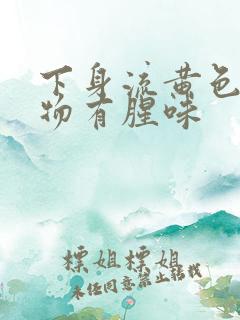 下身流黄色
物有腥味
标姐标姐
未经同意禁止转载